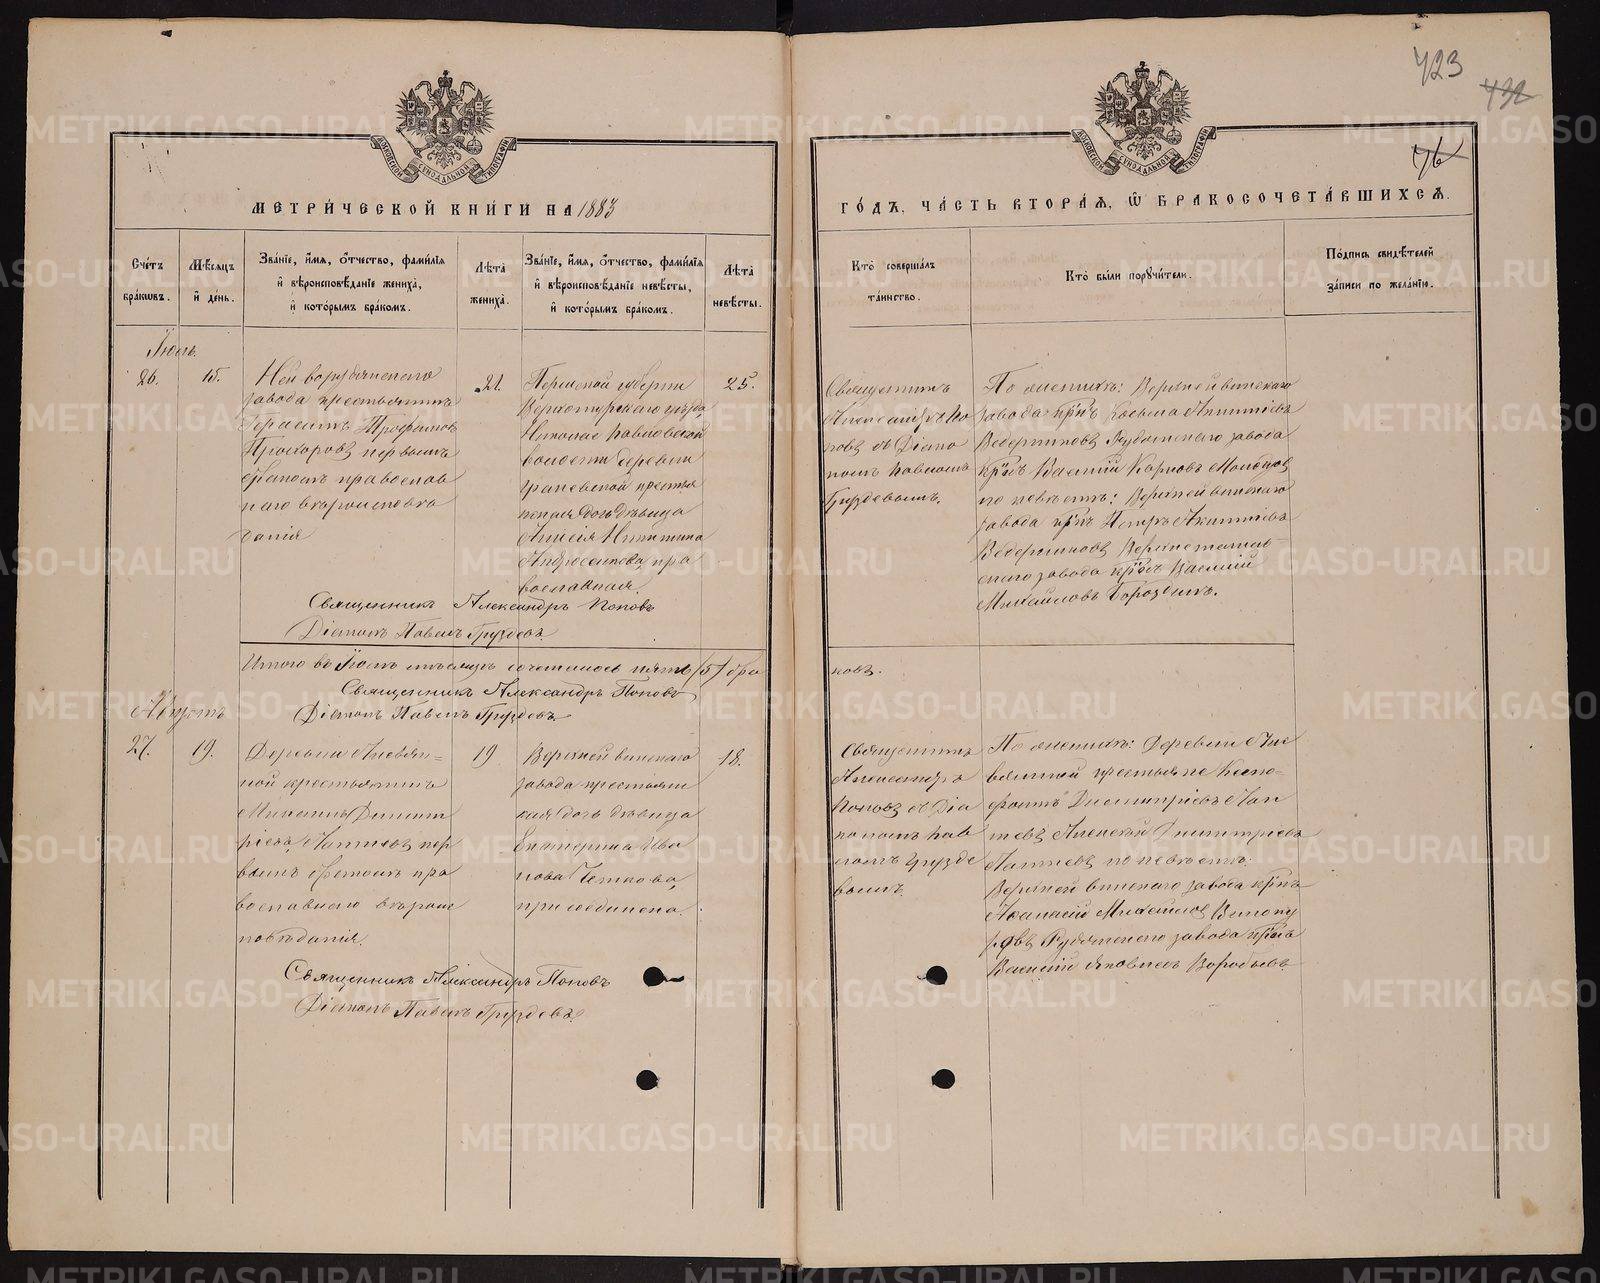 423
432
76
МОСКОВСКОЙ СѴНОДАЛЬНОЙ ТИПОГРАФІИ
МОСКОВСКОЙ СѴНОДАЛЬНОЙ ТИПОГРАФІИ
МЕТРИ́ЧЕСКОЙ КНИ́ГИ НА 1883
ГО́ДЪ, ЧА́СТЬ ВТОРА́Я, Ѿ БРАКОСОЧЕТА́ВШИХСЯ.
Сче́тъ бра́кѡвъ.
Мѣ́сяцъ и҆ де́нь.
Зва́нїе, и҆́мя, ѻ҆́тчество, фами́лїя
и҆ вѣроисповѣ́данїе жениха̀,
и҆ кото́рымъ бра́комъ.
Лѣта̀ жениха̀.
Зва́нїе, и҆́мя, ѻ҆́тчество, фами́лїя
и҆ вѣроисповѣ́данїе невѣ́сты,
и҆ кото́рымъ бра́комъ.
Лѣта̀ невѣ́сты.
Кто̀ соверша́лъ
та́инство.
Кто̀ бы́ли порꙋчи́тели.
По́дпись свидѣ́телей
за́писи по жела́нїю.
Іюль
26.
15.
завода крестьянинъ
Герасимъ Трофимов
Прохоровъ первымъ
бракомъ православ
наго вѣроисповѣ
данія
21.
Пермской губерніи
Верхотурскаго уѣзда
Николае Павловской
волости деревни
крестья
нская дочь дѣвица
Анисія Никитина
пра
вославная.
25.
Священникъ
Александръ По
повъ съ Діако
номъ Павломъ
Груздевымъ.
По женихѣ:
завода кр̃нъ Козьма
Ведерниковъ Рудянскаго завода
кр̃нъ Василій Карповъ
по невѣстѣ:
завода кр̃нъ Петръ
Ведерниковъ
скаго завода кр̃нъ Василій
Михайловъ Бороздинъ.
Священникъ Александръ Поповъ
Діаконъ Павелъ Груздевъ
Итого въ Іюлѣ мѣсяцѣ сочеталось пять (5) бра
ковъ.
Священникъ Александръ Поповъ
Діаконъ Павелъ Груздевъ
Августъ
27.
19.
Деревни
ной крестьянинъ
Дмит
ріевъ Лаптевъ пер
вымъ бракомъ пра
вославнаго вѣроис
повѣданія.
19
завода крестьян
ская дочь дѣвица
Екатерина Ива
нова
присоединена.
18.
Священникъ
Александръ
Поповъ съ Діа
кономъ Пав
ломъ Грузде
вымъ.
По женихѣ: Деревни
крестьяне
Дмитріевъ Лап
тевъ Алексѣй Дмитріевъ
Лаптевъ по невѣстѣ:
завода кр̃нъ
Афанасій Михайловъ Виноку
ровъ Рудянскаго завода кр̃нъ
Василій Яковлевъ Воробьевъ
Священникъ Александръ Поповъ
Діаконъ Павелъ Груздевъ.
METRIKI.GASO-URAL.RU